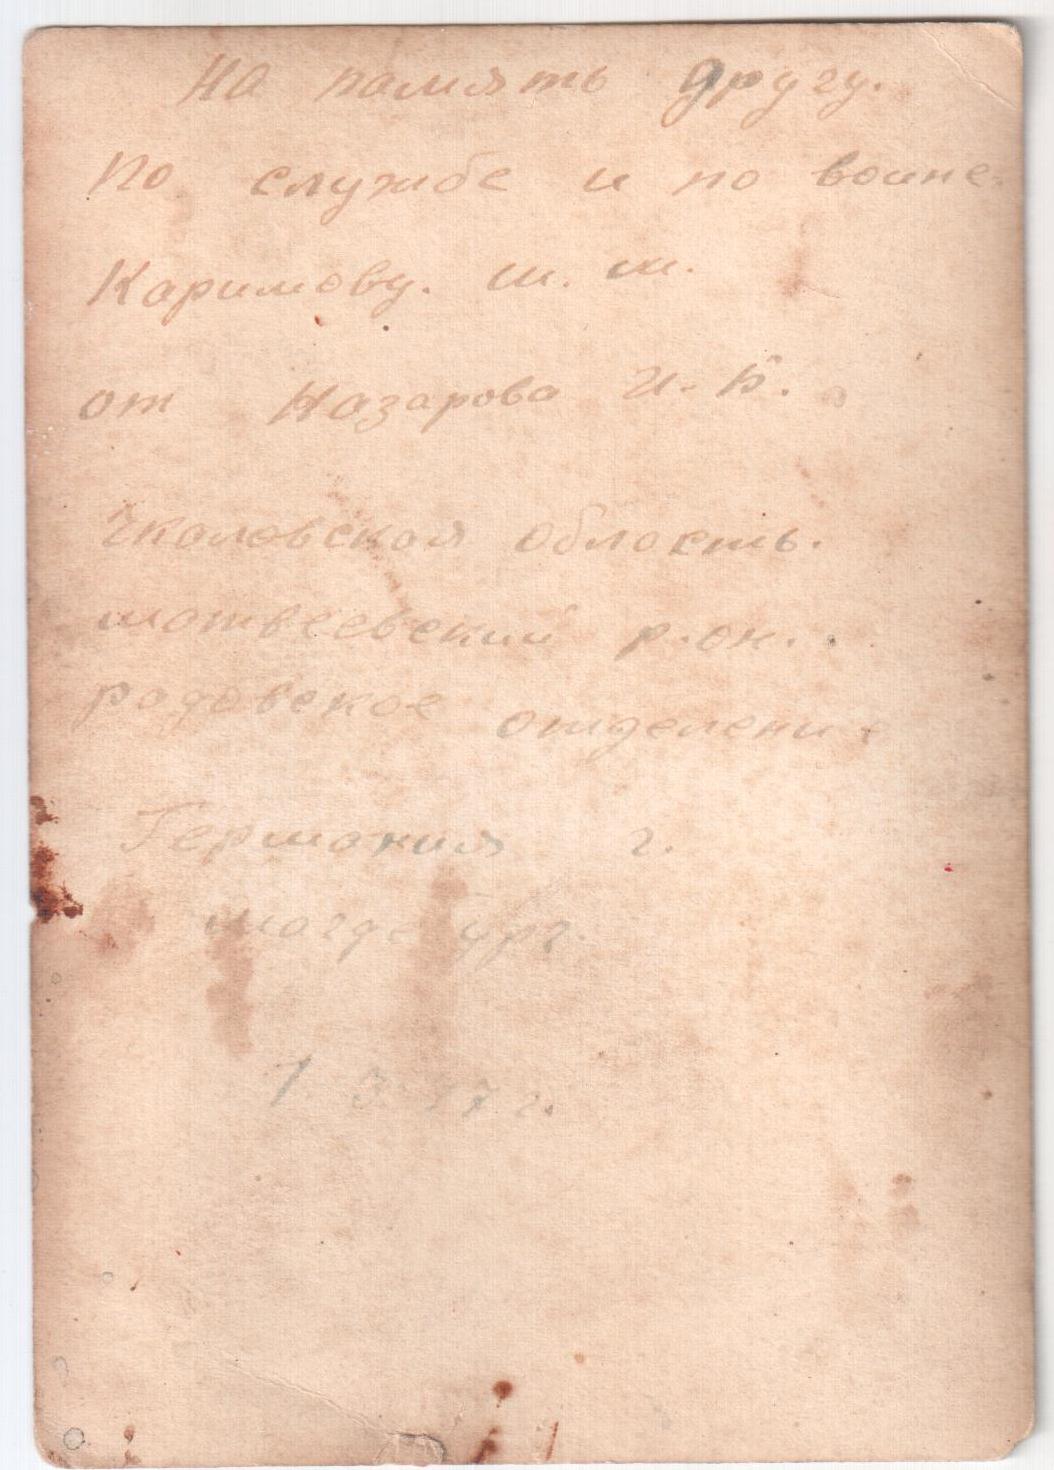 На память другу.
По службе и по воине.
Каримову. Ш. Ш.
от Назарова И. Б.
Чкаловская область.
Матвеевский р.он.
родовское отделение
Германия г.
Магдебург.
1. 3. 47 г.